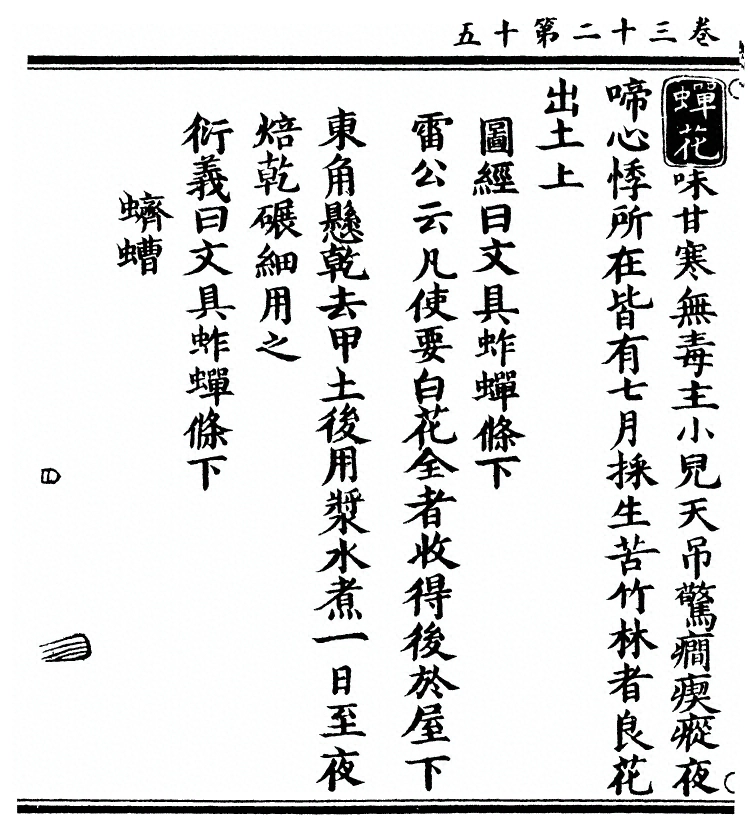 卷三十二第十五
蟬花味甘寒無毒主小兒天吊驚癇瘈瘲夜
啼心悸所在皆有七月採生苦竹林者良花
出土上
圖經曰文具蚱蟬條下
雷公云凡使要白花全者收得後於屋下
東角懸乾去甲土後用漿水煮一日至夜
焙乾碾細用之
衍義曰文具蚱蟬條下
蠐螬